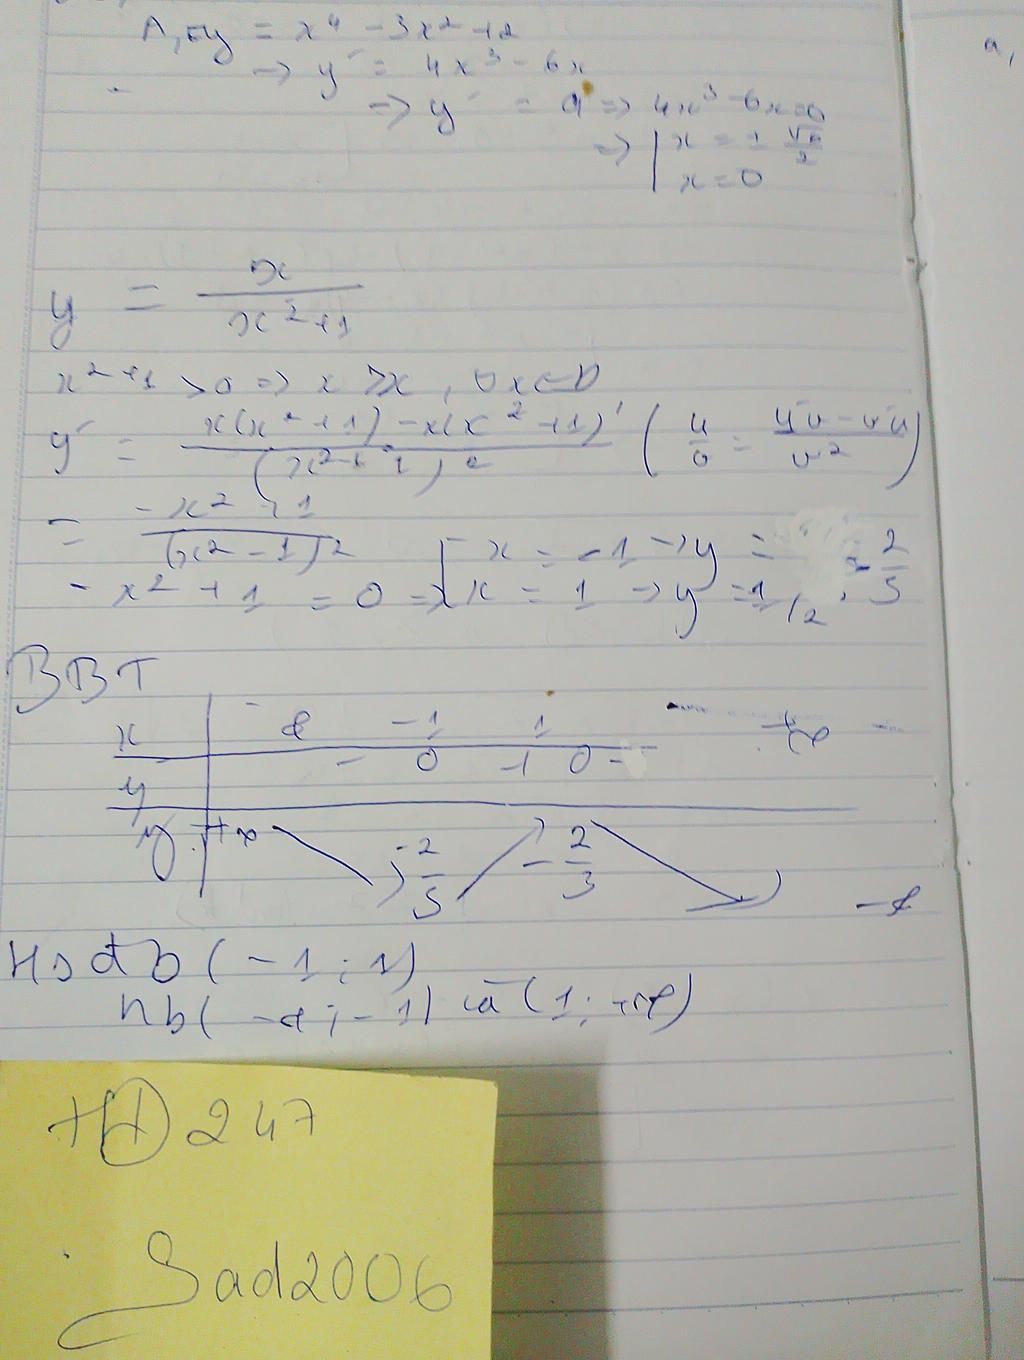 A, y = x⁴ - 3x² + 2
→ y' = 4x³ - 6x
→ y' = 0 ⇒ 4x³ - 6x = 0
⇒ | x = ± √6/2
x = 0
a,
y = x/(x² + 1)
x² + 1 > 0 ⇒
y' = (x(x² + 1) - x(x² + 1)')/(x² + 1)² (u/v = (u'v - v'u)/v²)
= (-x² + 1)/(x² - 1)²
[ x = -1 → y = - 2/5
-x² + 1 = 0 ⇒ x = 1 → y = 1/2
BBT
x | -∞ -1 1 +∞
y' | - 0 + 0 -
y | +∞ -2/5 - 2/3 -∞
Hs đb (-1 ; 1)
nb (-∞ ; -1) và (1 ; +∞)
HD 247
Sad2006